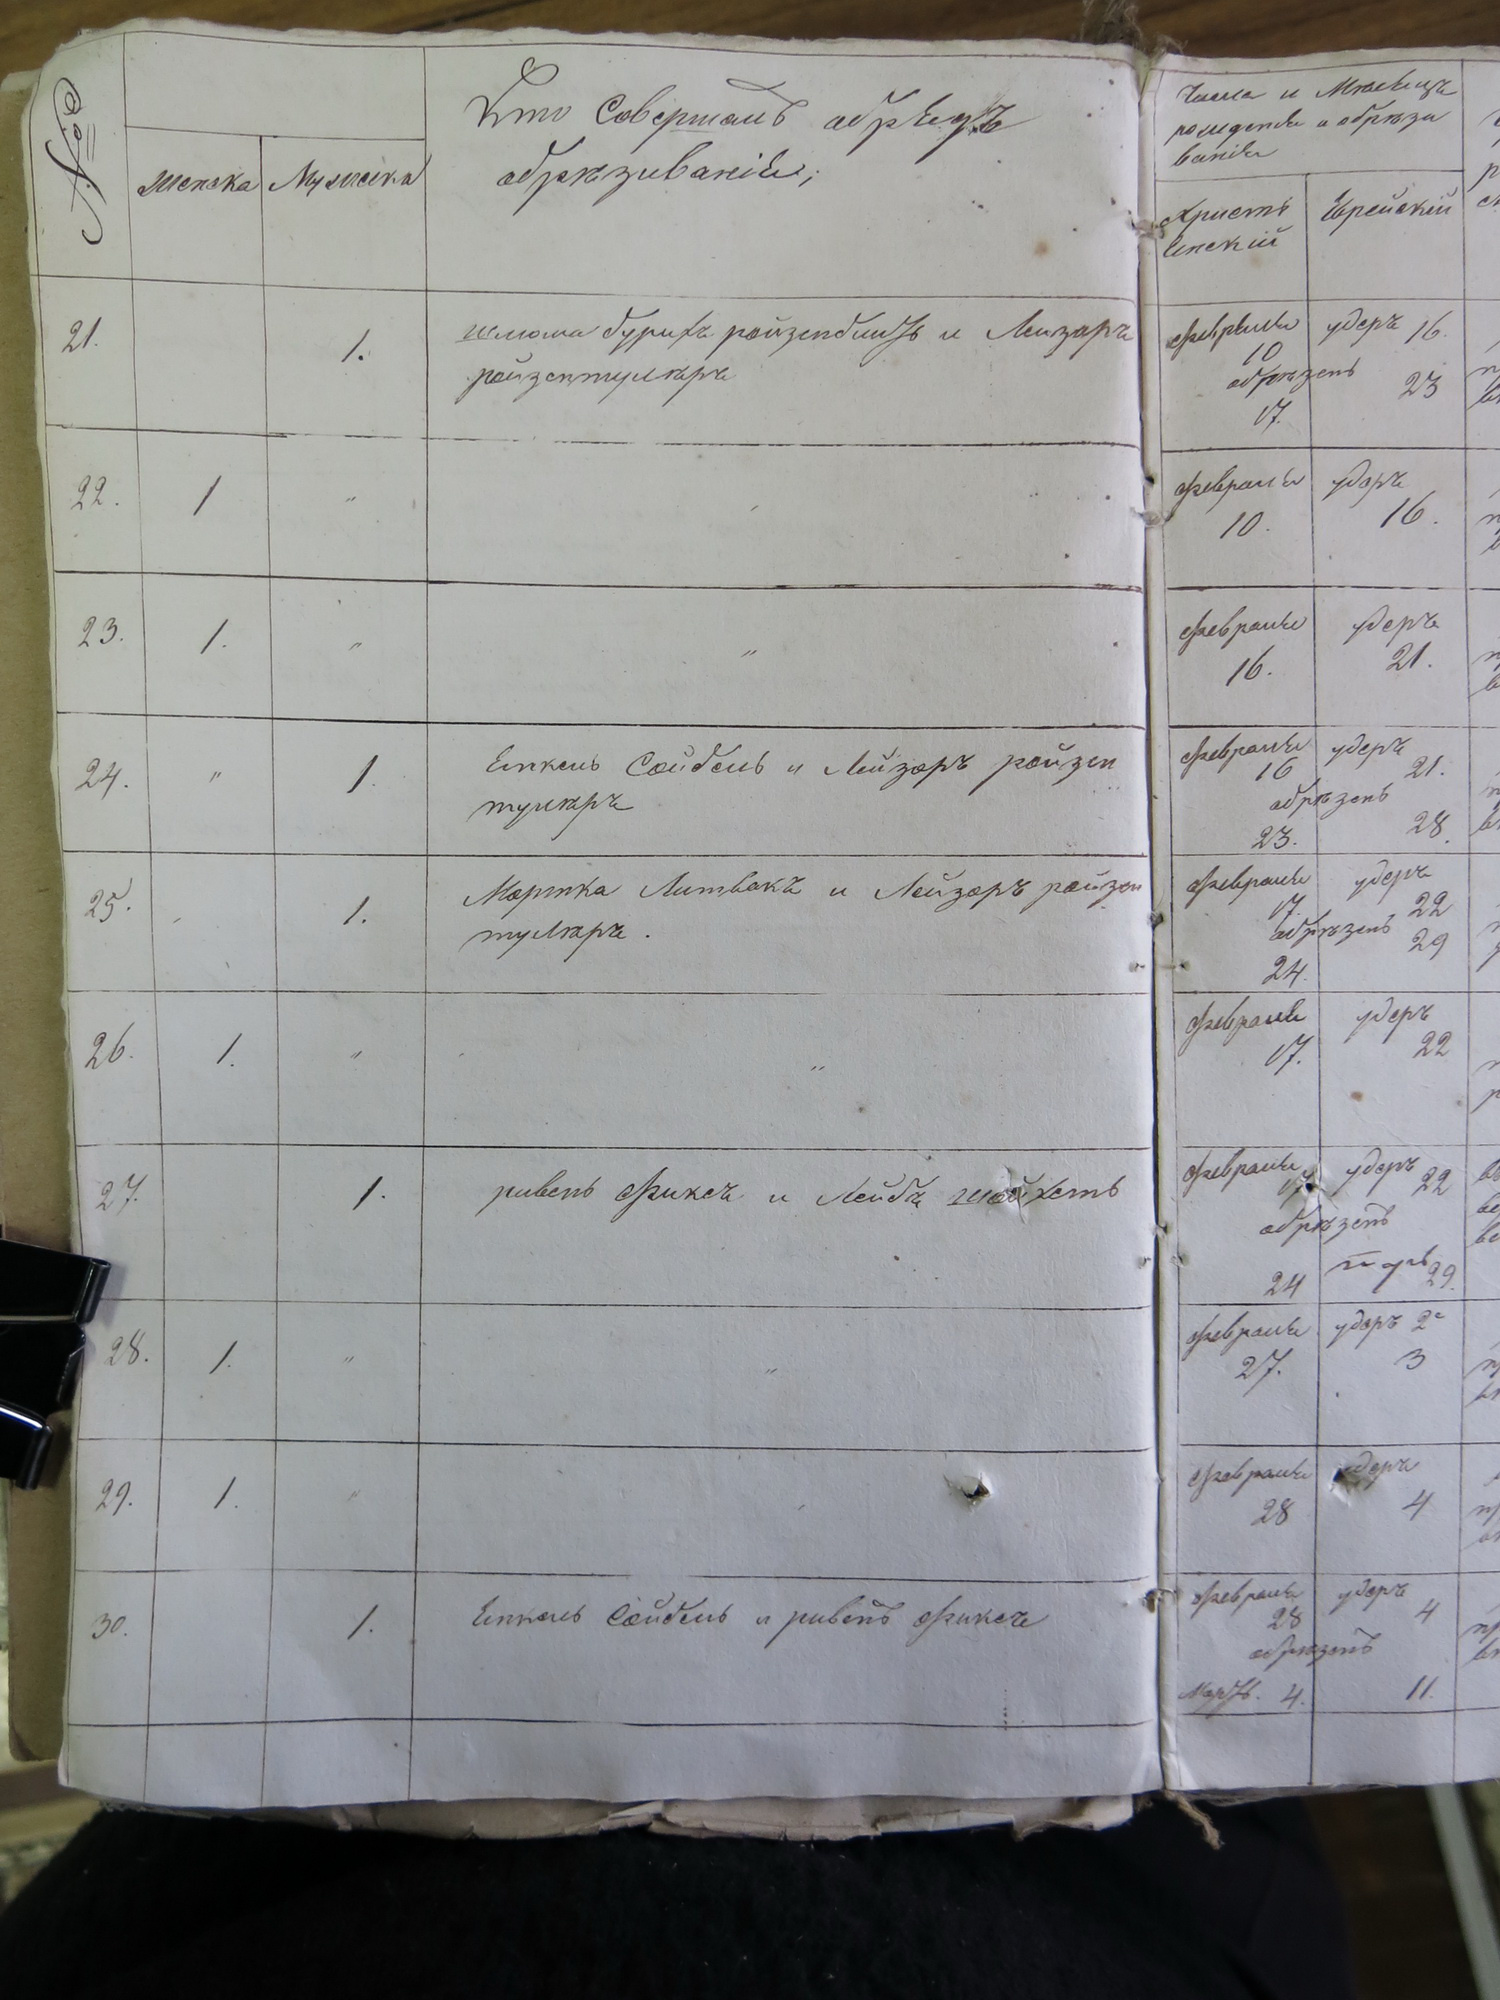 №
женска
Мужеска
Кто Совершалъ абрядъ
абрезиванія;
Числа и Месяцъ
рождения и абрези
вания
Христь
янский
Еврейский
21.
1.
шлиома бурихъ ройзенблитъ и Лейзаръ
ройзентулеръ
февраля
10
абрезенъ
17.
удеръ 16.
23
22.
1
"
февраля
10.
удеръ
16.
23.
1.
"
"
февраля
16.
удеръ
21.
24.
"
1.
Янкель Сойбель и Лейзаръ ройзен
тулеръ
февраля
16
абрезенъ
23.
удеръ
21.
28.
25.
1.
Моршка Литвакъ и Лейзаръ ройзен
тулеръ.
февраля
17.
абрезенъ
24.
удеръ
22
29
26.
1.
"
"
февраля
17.
удеръ
22
27.
1.
ривенъ фиксъ и Лейбъ шойхетъ
февраля
17
абрезенъ
24
удеръ
22
29.
28.
1.
"
"
февраля
27.
удеръ 2й
3
29.
1.
"
февраля
28
удеръ
4
30.
1.
Янкель Сойбель и ривенъ фиксъ
февраля
28
абрезенъ
Мартъ. 4.
удеръ
4
11.